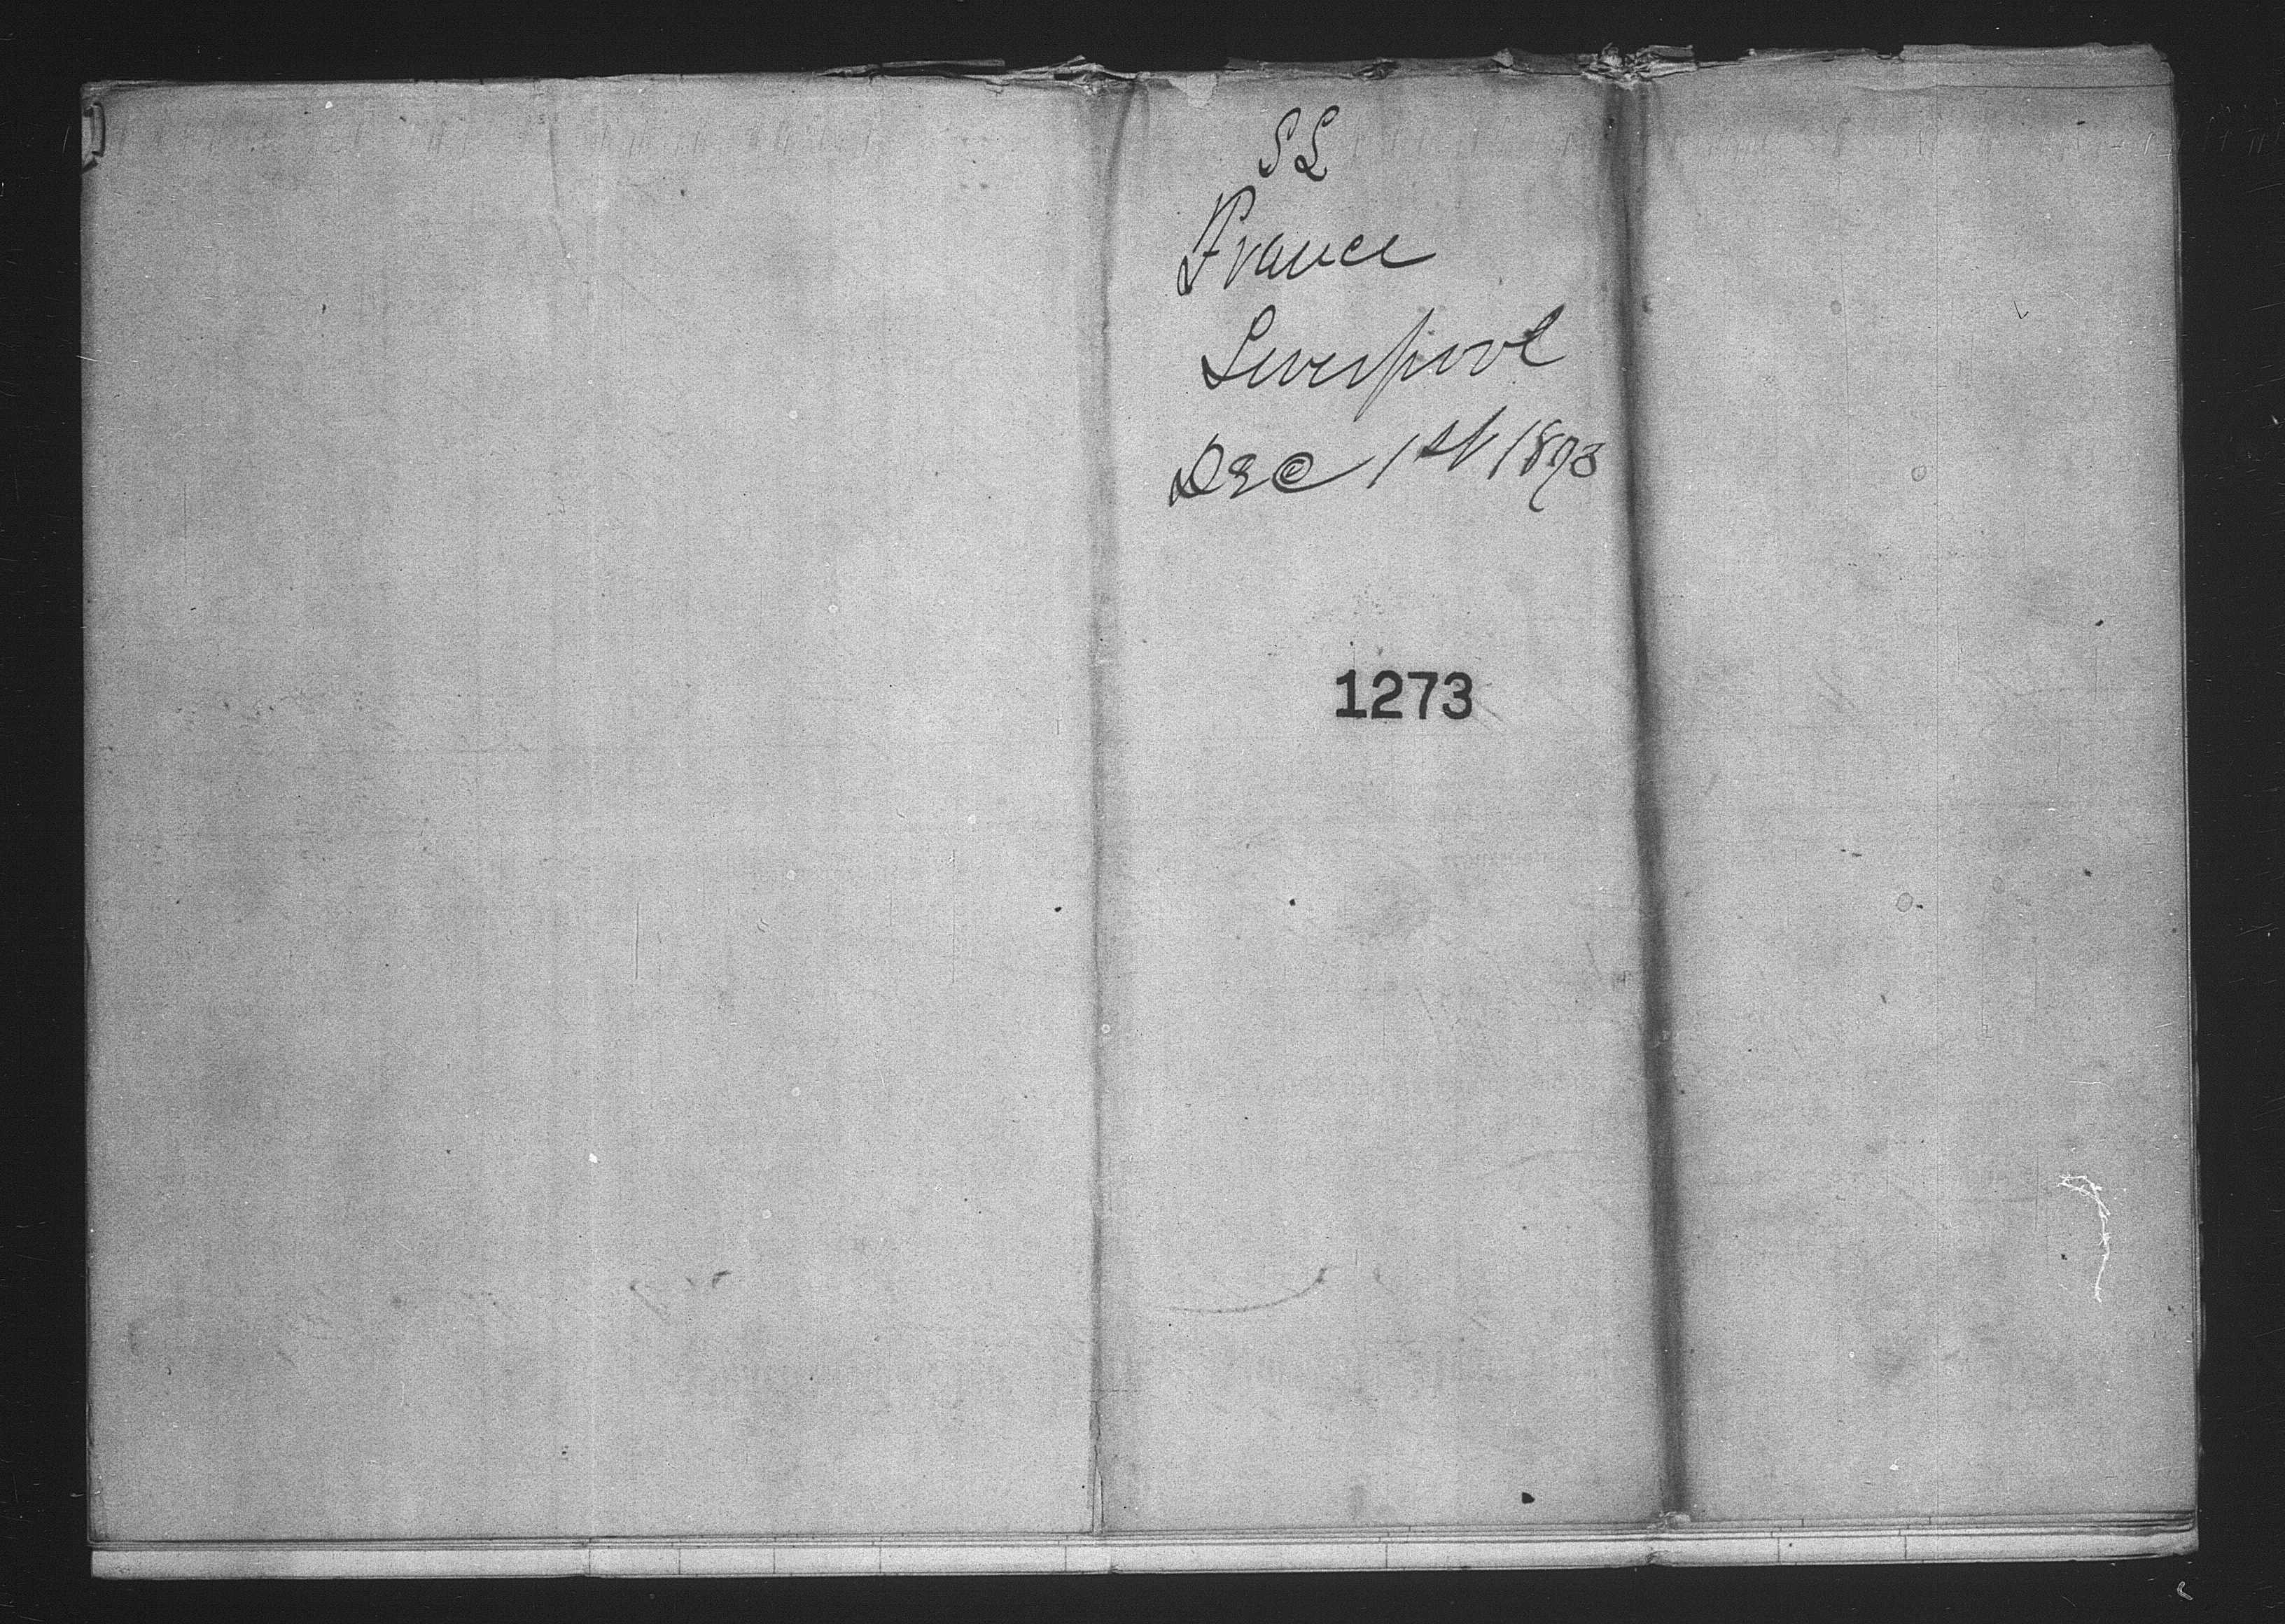 SL
France
Liverpool
Dec 1st 1873
1273